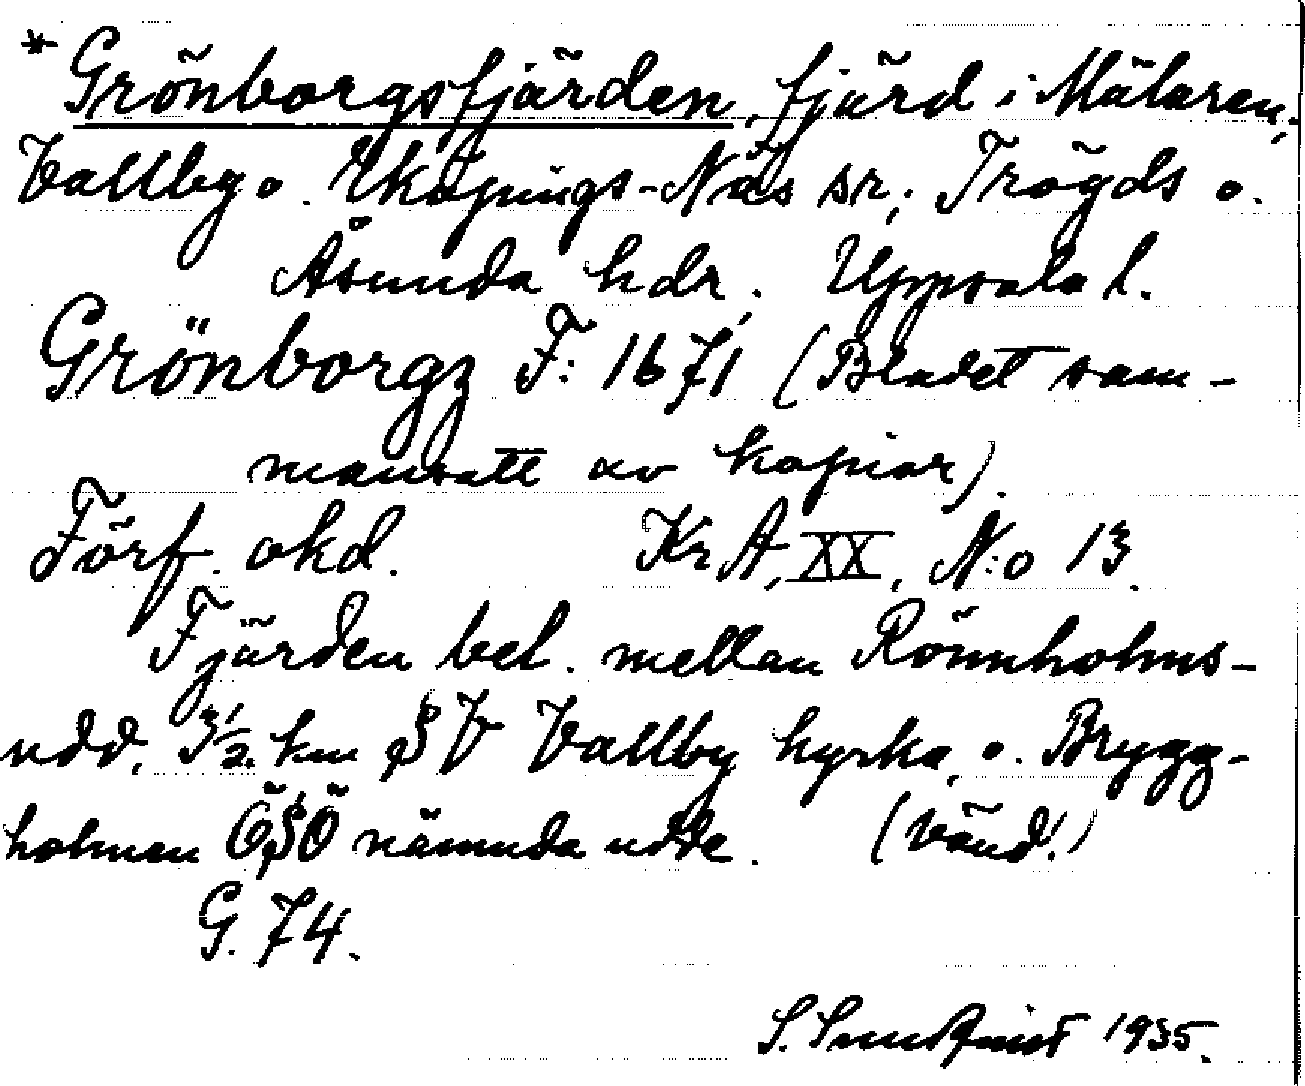 * Grönborgsfjärden, fjärd i Mälaren,
Vallby o. Eköpings-Näs snr, Trögds o.
Åsunda hdr, Uppsala l.
Grönborgz F: 1671 (Bladet sam-
mansatt av kopior).
Förf. okd. KrA, XX, N:o 13.
Fjärden bel. mellan Rönnholms-
udd, 3 1/2 km SV Vallby kyrka, o. Brygg-
holmen ÖSÖ nämnda udde. (Vänd!)
G. 74.
S. 1935.